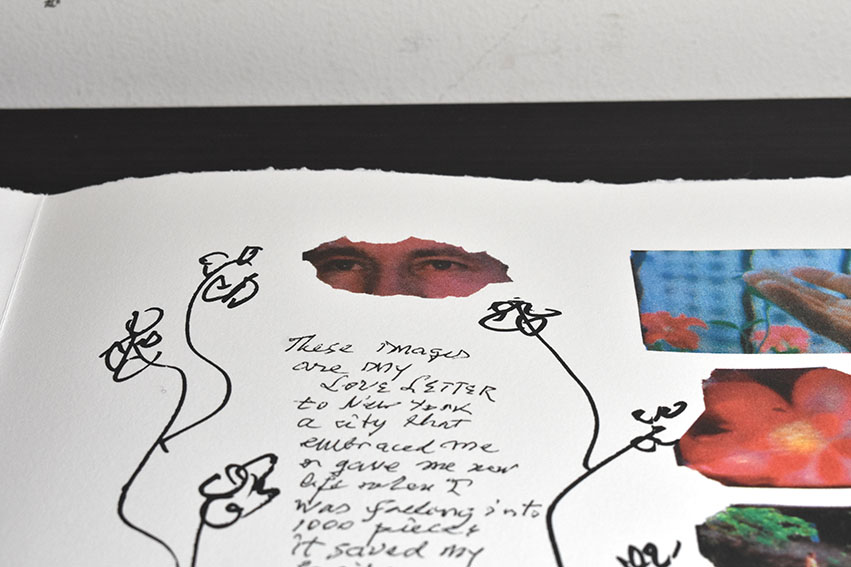 These images
are my
LOVE LETTER
to New York
a city that
embraced me
& gave me new
life when I
was falling into
1000 pieces
it saved my